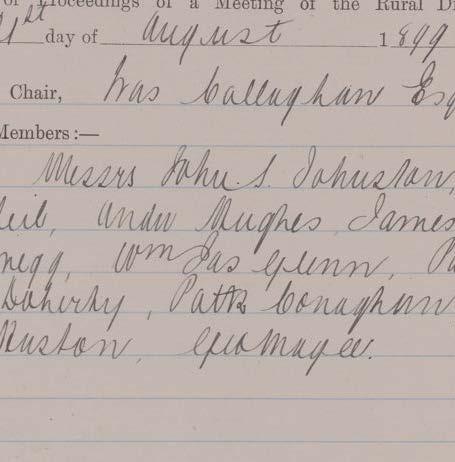 of Proceedings of a Meeting of the Rural Di
21st day of August 1899
Chair, Callaghan Esq
Members:—
Messrs John S. Johnston,
Andw Hughes, James
Wm Jas Glenn, Pa
Doherty, Pattk Conaghan
Huston, Geo Magee.